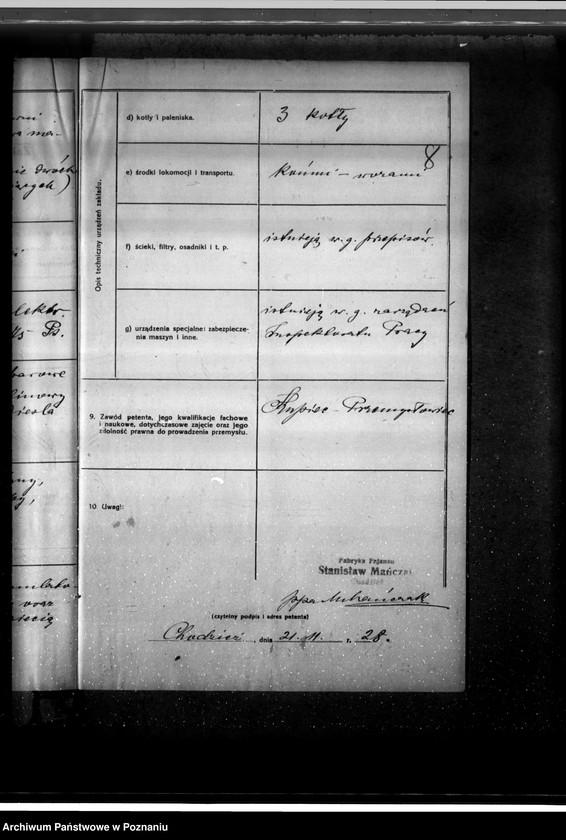 lektr.
Opis techniczny urządzeń zakładu.
d) kotły i paleniska.
3 kotły
8
e) środki lokomocji i transportu.
Końmi – wozami
f) ścieki, filtry, osadniki i t. p.
istnieją w. g. przepisów.
g) urządzenia specjalne: zabezpiecze-
nia maszyn i inne.
istnieją w. g. zarządzeń
Inspektoratu Pracy
9. Zawód petenta, jego kwalifikacje fachowe
i naukowe, dotychczasowe zajęcie oraz jego
zdolność prawna do prowadzenia przemysłu.
Kupiec – Przemysłowiec
10. Uwagi:
Stanisław Mańczak
(czytelny podpis i adres petenta)
Chodzież, dnia 21. 11. r. 28.
Archiwum Państwowe w Poznaniu